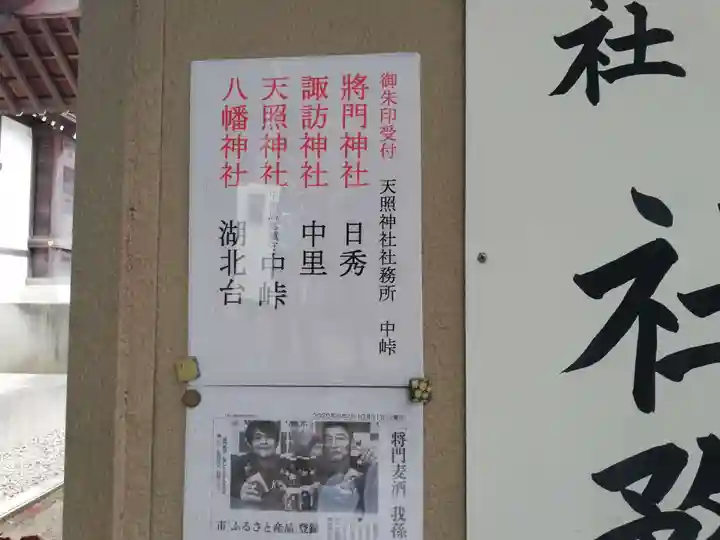 御朱印受付 天照神社社務所 中峠
將門神社 日秀
諏訪神社 中里
天照神社 中峠
八幡神社 湖北台
社
社務
「将門麦酒 我孫
市「ふるさと産品」登録